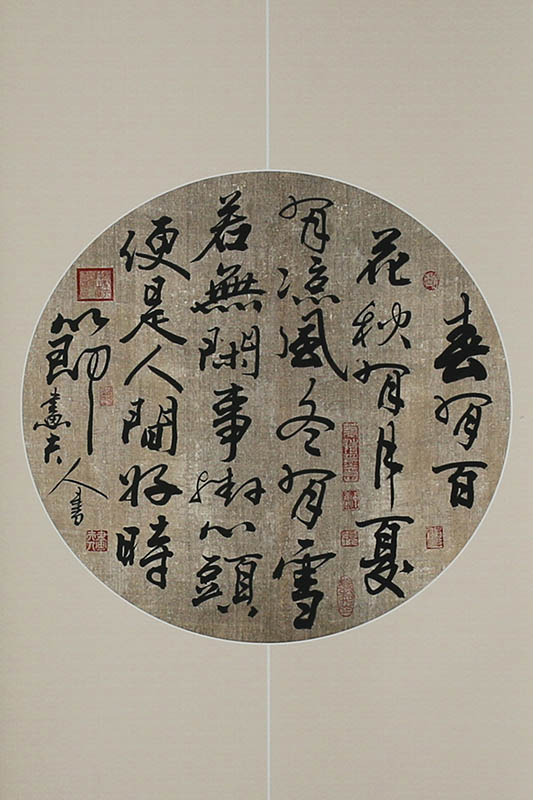 春有百
花秋有月夏
有涼風冬有雪
若無閑事掛心頭
便是人間好時
節
人書